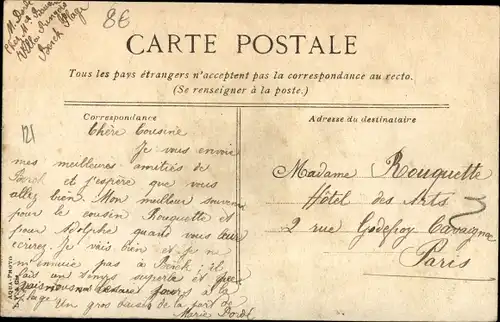 8€
M. Doret
Chez Mr
Villa
Berck Plage
CARTE POSTALE
Tous les pays étrangers n'acceptent pas la correspondance au recto.
(Se renseigner à la poste.)
Correspondance
Adresse du destinataire
121
Chère Cousine
Je vous envoie
mes meilleures amitiés de
Berck et j'espère que vous
allez bien. Mon meilleur souvenir
pour le cousin Rouquette et
pour Adolphe quand vous leur
ecrirez. Je vais bien et je ne
m'ennuie pas à Berck il
fait un temps superbe et que
jours à la
plage
Un gros baiser de la part de
Marie Doret
Madame Rouquette
Hôtel des Arts
2 rue Godefroy Cavagnac
Paris
AQUA-PHOTO